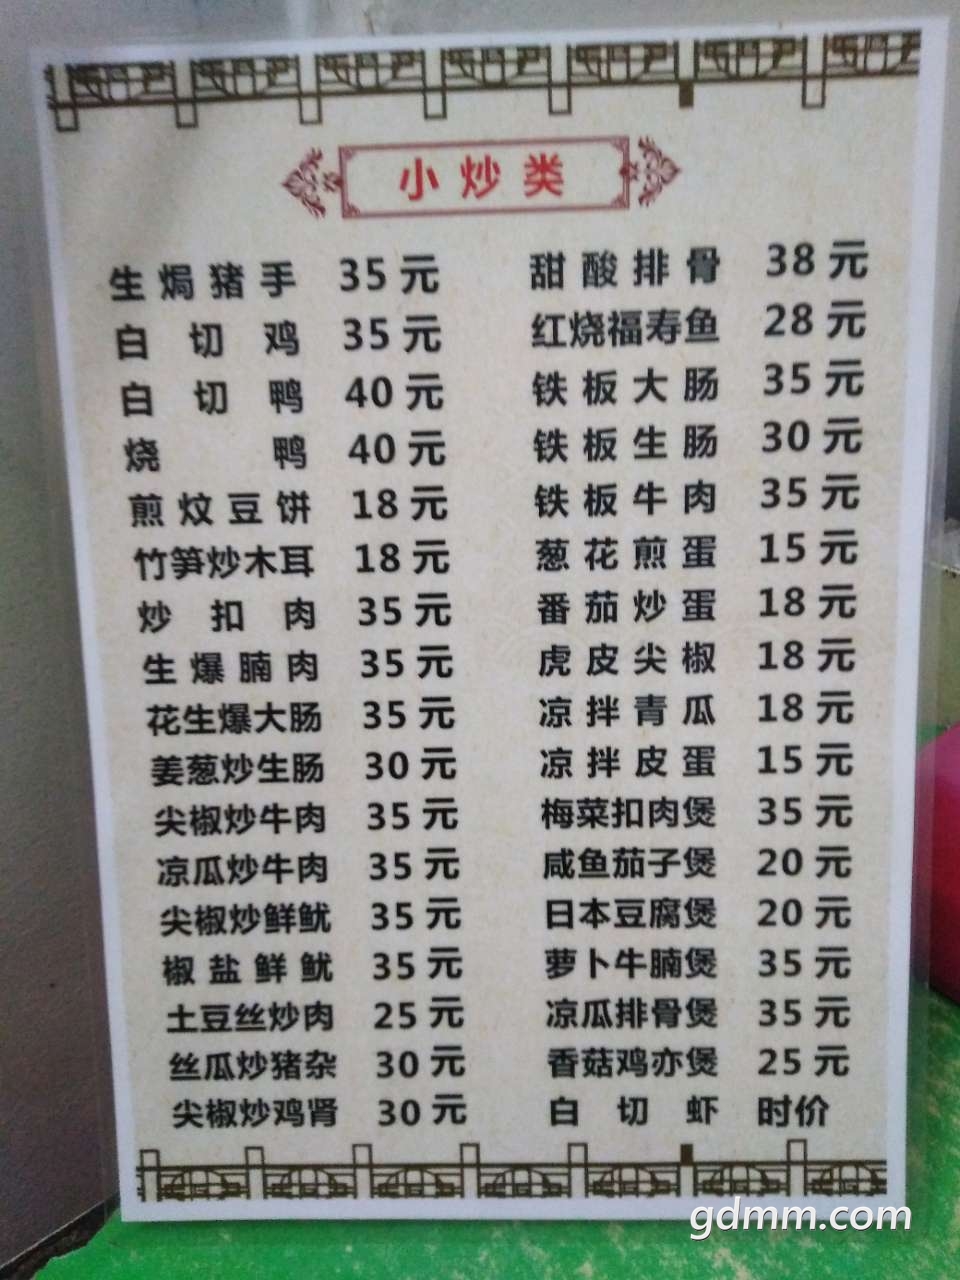 小炒类
生焗猪手 35元
白切鸡 35元
白切鸭 40元
烧鸭 40元
煎炆豆饼 18元
竹笋炒木耳 18元
炒扣肉 35元
生爆腩肉 35元
花生爆大肠 35元
姜葱炒生肠 30元
尖椒炒牛肉 35元
凉瓜炒牛肉 35元
尖椒炒鲜鱿 35元
椒盐鲜鱿 35元
土豆丝炒肉 25元
丝瓜炒猪杂 30元
尖椒炒鸡肾 30元
甜酸排骨 38元
红烧福寿鱼 28元
铁板大肠 35元
铁板生肠 30元
铁板牛肉 35元
葱花煎蛋 15元
番茄炒蛋 18元
虎皮尖椒 18元
凉拌青瓜 18元
凉拌皮蛋 15元
梅菜扣肉煲 35元
咸鱼茄子煲 20元
日本豆腐煲 20元
萝卜牛腩煲 35元
凉瓜排骨煲 35元
香菇鸡亦煲 25元
白切虾 时价
gdmm.com